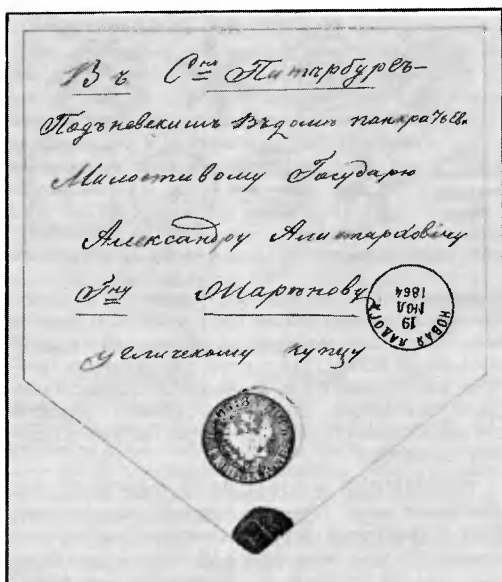 Въ С нл Питарбургъ
Подъ невскимъ Въ домъ панкратьев
Милостивому Государю
Александру Алистарховичу
Гну Мартнову
угличскому купцу
НОВАЯ ЛАДОГА
19
ІЮЛ
1864